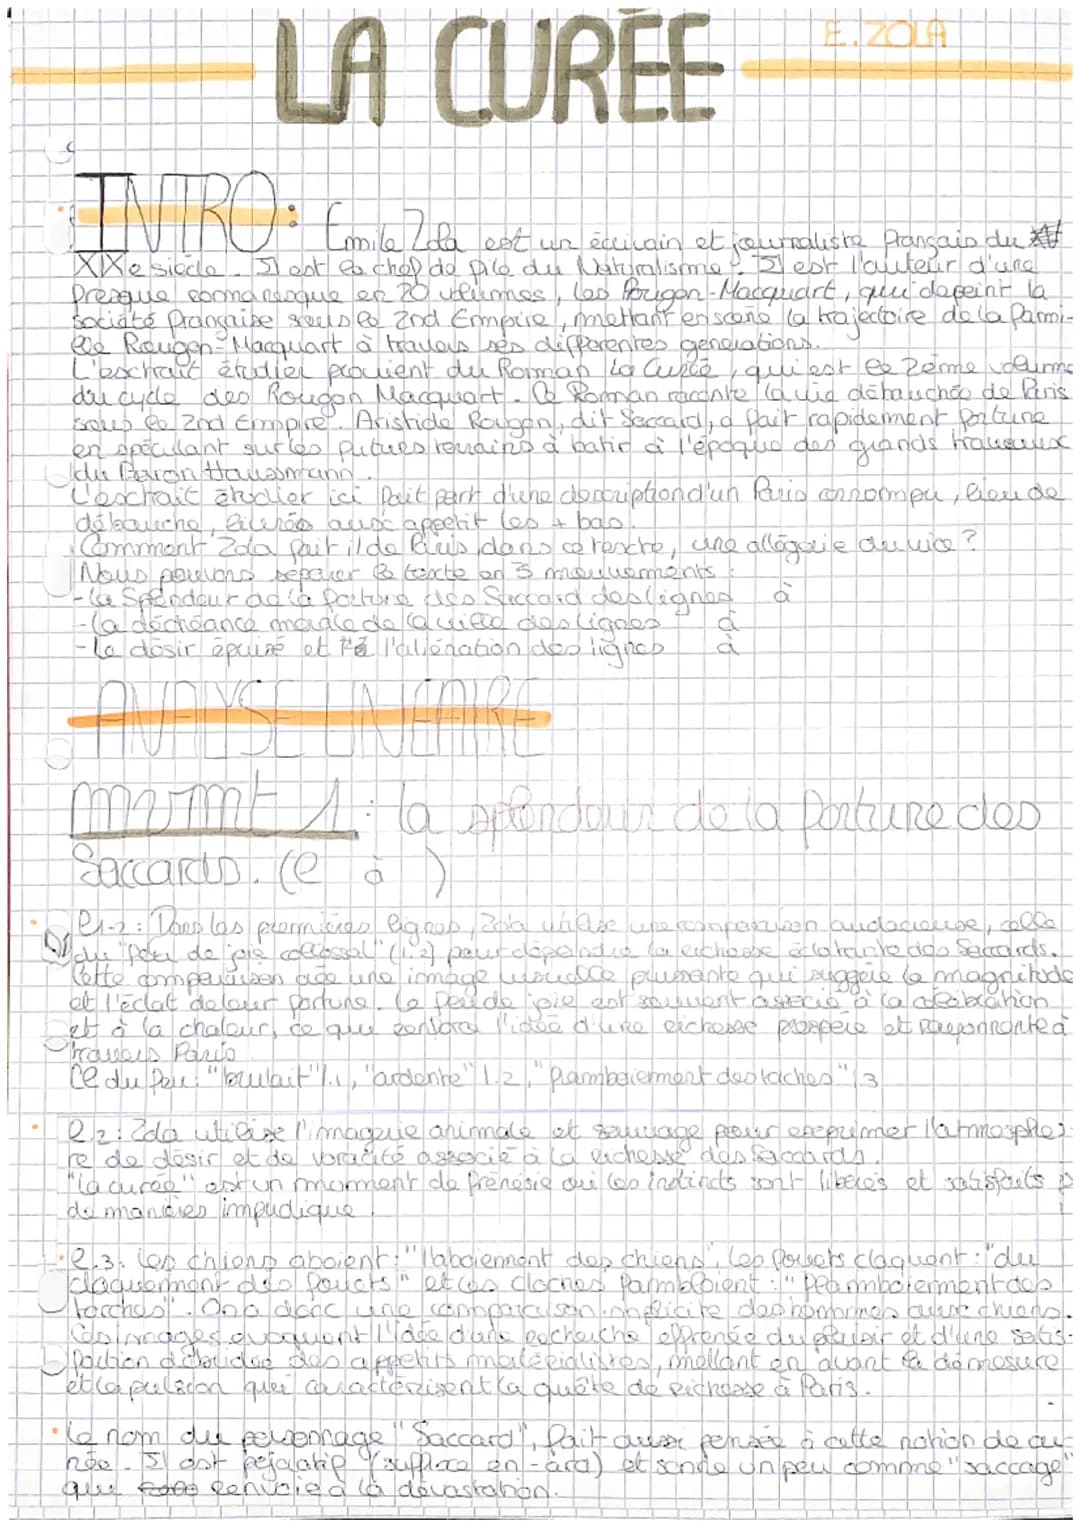 LA CURÉE
E. ZOLA
INTRO:
Emile Zola est un écrivain et journaliste français du
XIXe siècle. Il est le chef de file du Naturalisme. Il est l'auteur d'une
fresque romanesque en 20 volumes, les Rougon-Macquart, qui dépeint la
société française sous le 2nd Empire, mettant en scène la trajectoire de la fami-
lle Rougon-Macquart à travers ses différentes générations.
L'esctrait étudier provient du Roman La Curée, qui est le 2ème volume
du cycle des Rougon Macquart. Ce Roman raconte la vie débauchée de Paris
sous le 2nd Empire. Aristide Rougon, dit Saccard, a fait rapidement fortune
en spéculant sur les futurs terrains à batir à l'époque des grands travaux
du Baron Haussmann.
L'esctrait étudier ici fait part d'une description d'un Paris corrompu, lieu de
débauche, livrés aux appetit les + bas.
Comment Zola fait il de Paris, dans ce texte, une allégorie du vice ?
Nous pouvons séparer le texte en 3 mouvements :
- la Splendeur de la fortune des Saccard des lignes à
- la déchéance morale de la ville des lignes à
- le désir épuisé et l'aliénation des lignes à
ANALYSE LINEAIRE
mvmt 1 : la splendeur de la fortune des
Saccards. (l à )
l1-2 : Dans les premières lignes, Zola utilise une comparaison audacieuse, celle
du "feu de joie colossal" (l.2) pour dépeindre la richesse éclatante des Saccards.
Cette comparaison crée une image visuelle puissante qui suggère la magnitude
et l'éclat de leur fortune. Le feu de joie est souvent associé à la célébration
et à la chaleur, ce qui renforce l'idée d'une richesse prospère et rayonnante à
travers Paris
CL du feu : "brulait" l.1, "ardente" l.2, "flamboiement des taches" l3
l2 : Zola utilise l'imagerie animale et sauvage pour exprimer l'atmosphè-
re de désir et de voracité associé à la richesse des Saccards.
"la curée" est un moment de frénésie où les instincts sont libérés et satisfaits
de manières impudique
l.3 : les chiens aboient : "l'aboiement des chiens", les fouets claquent : "du
claquement des fouets" et les cloches flamboient : "flamboiement des
torches". On a donc une comparaison implicite des hommes aux chiens.
Ces images évoquent l'idée d'une recherche effrénée du plaisir et d'une satis-
faction des appetits matérialistes, mettant en avant la démesure
et la pulsion qui caractérisent la quête de richesse à Paris.
Le nom du personnage "Saccard", fait aussi pensée à cette notion de cu-
rée. Il est péjoratif (suffixe en -ard) et sonne un peu comme "saccage"
qui renvoie à la dévastation.